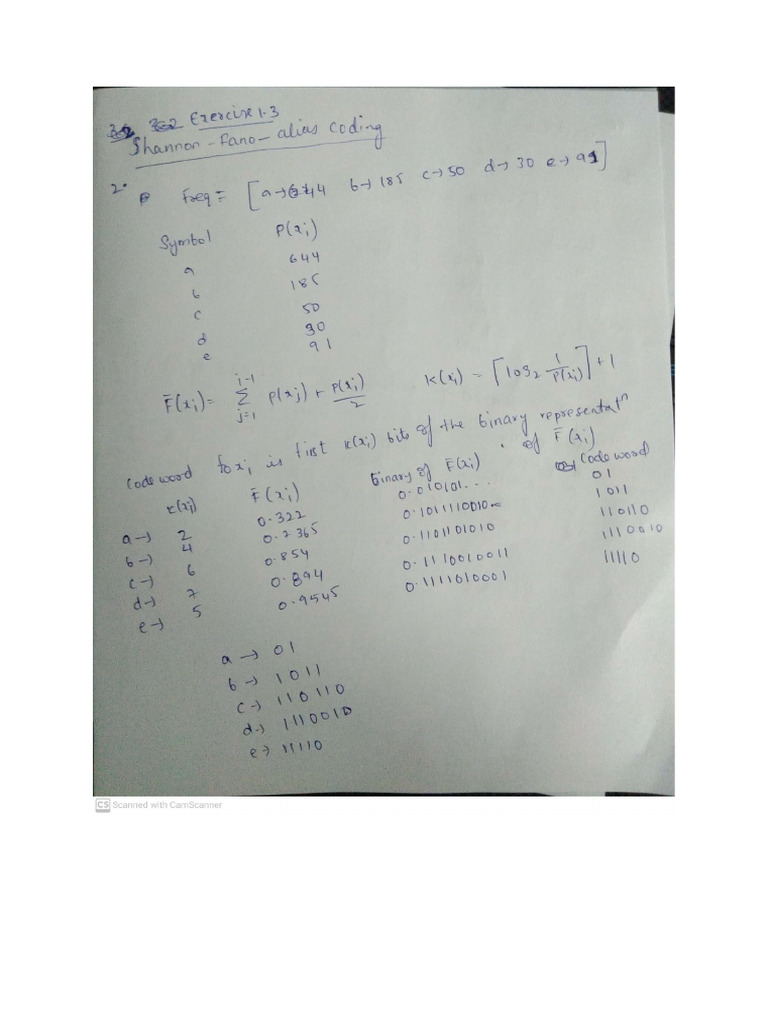 Exercise 1.3
Shannon-Fano-alias coding
2. Freq = [a→644 b→185 c→50 d→30 e→91]
Symbol P(xi)
a 644
b 185
c 50
d 30
e 91
F̄(xi) = Σ_{j=1}^{i-1} P(xj) + P(xi)/2 K(xi) = ⌈log2 1/P(xi)⌉ + 1
Code word for xi is first K(xi) bits of the binary representatn of F̄(xi)
K(xi) F̄(xi) binary of F̄(xi) Code word
a→ 2 0.322 0.010101... 01
b→ 4 0.7365 0.1011110010 1011
c→ 6 0.854 0.1101101010 110110
d→ 7 0.894 0.1110010011 1110010
e→ 5 0.9545 0.1111010001 11110
a → 01
b → 1011
c → 110110
d → 1110010
e → 11110
CS Scanned with CamScanner